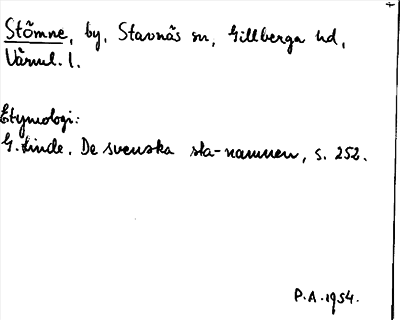 Stömne, by, Stavnäs sn, Gillberga hd,
Värml. l.
Etymologi:
G. Linde. De svenska sta-namnen, s. 252.
P.A. 1954.